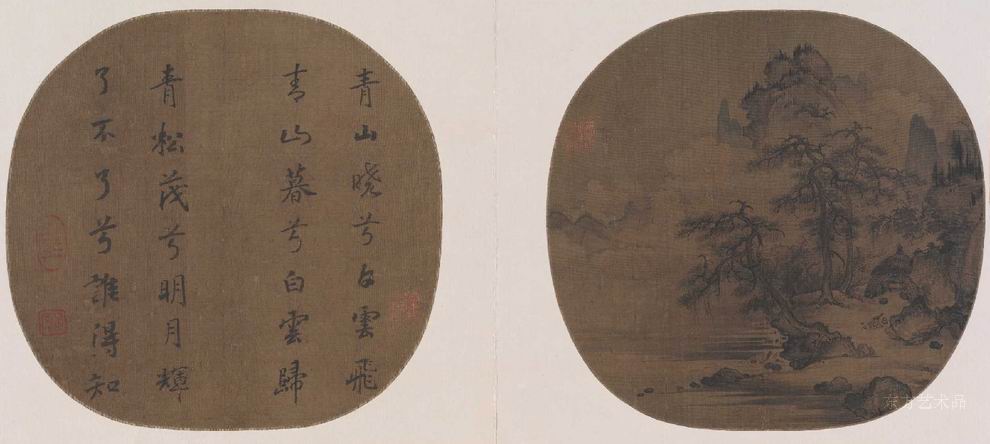 青山曉兮白雲飛
青山暮兮白雲歸
青松茂兮明月輝
了不了兮誰得知
东方艺术品